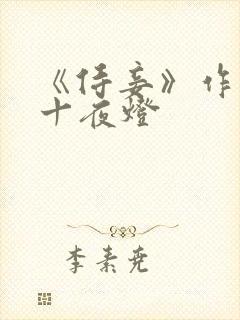 《侍妾》作
十夜燈
李素尧